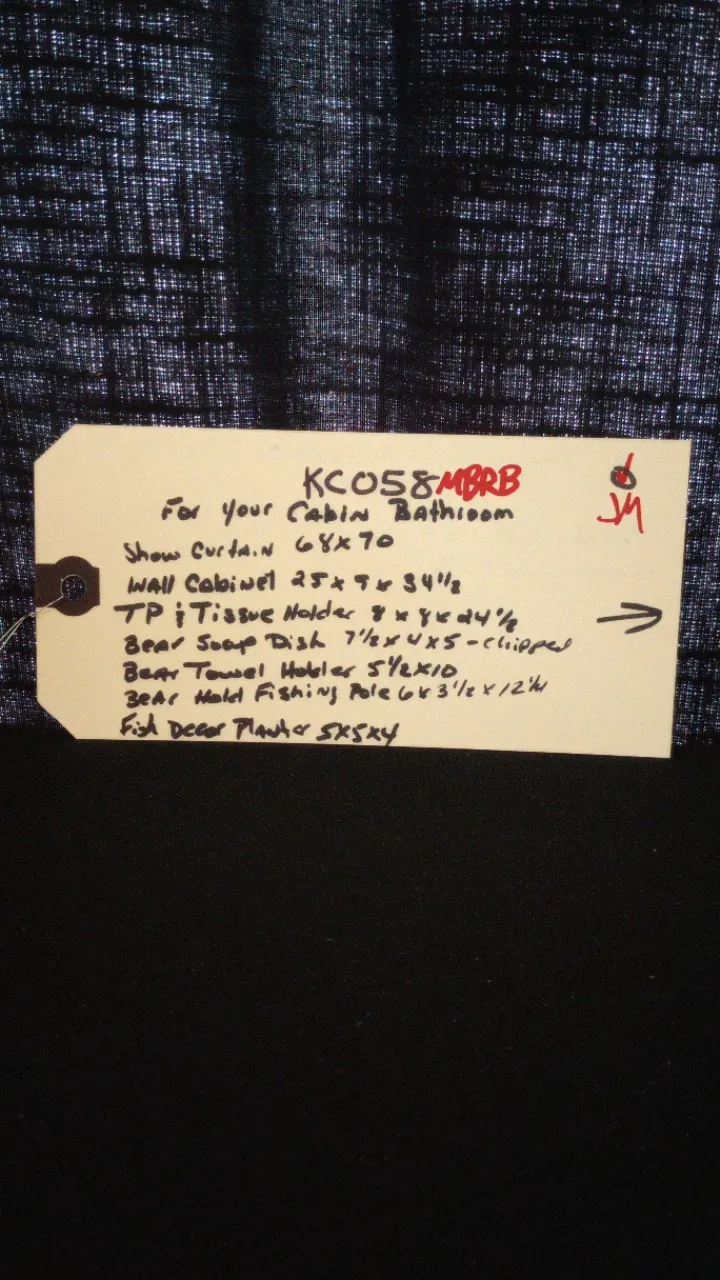 KC058 MBRB
JM
For Your Cabin Bathroom
Show Curtain 68x70
Wall Cabinet 25 x 9 x 34 1/2
TP & Tissue Holder 8 x 8 x 24 1/2
Bear Soap Dish 7 1/2 x 4 x 5 - chipped
Bear Towel Holder 5 1/2 x 10
Bear Hold Fishing Pole 6 x 3 1/2 x 12 1/4
Fish Decor Planter 5x5x4